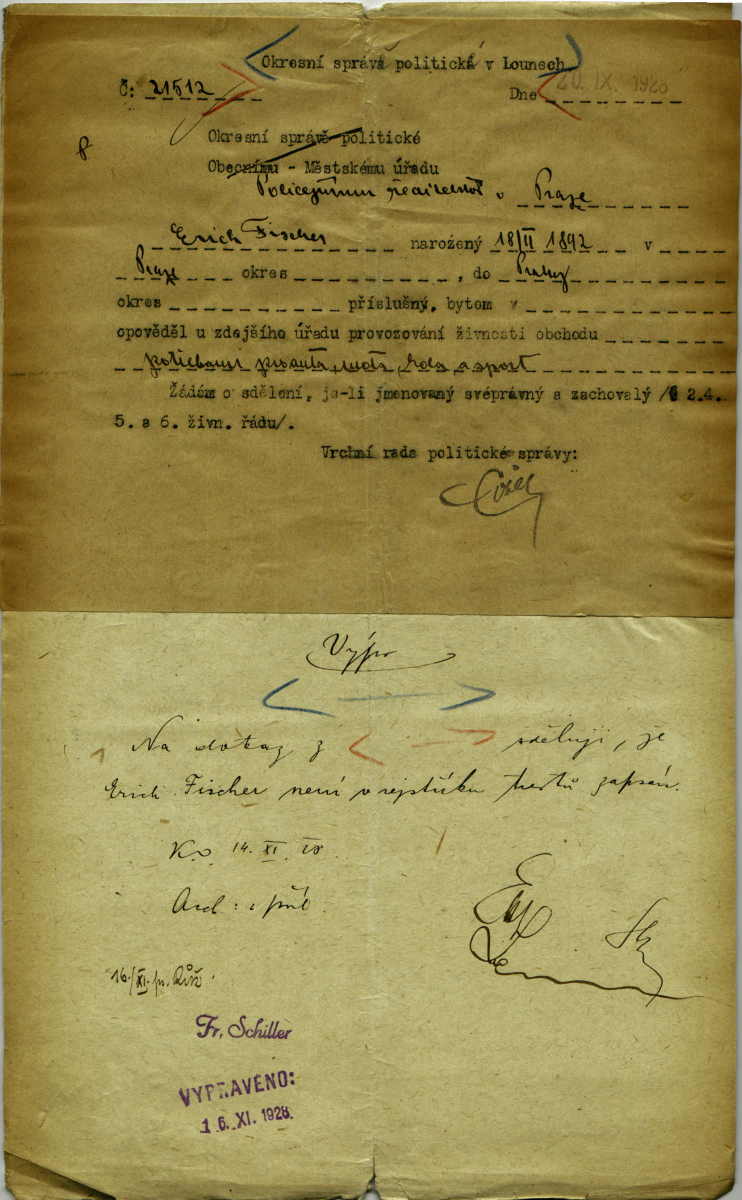 Okresní správa politická v Lounech
Č: 21512
Dne 20. IX. 1928
Okresní správě politické
Obecnímu - Městskému úřadu
Policejnímu ředitelství v Praze
Erich Fischer narožený 18/II 1892 v
Praze okres , do Prahy
okres příslušný, bytom v
opověděl u zdejšího úřadu provozování živnosti obchodu
potřebami pro auta, moto, a sport
Žádám o sdělení, je-li jmenovaný svéprávný a zachovalý /§ 2.4.
5. a 6. živn. řádu/.
Vrchní rada politické správy:
Výpr
Na dotaz z sděluji, že
Erich Fischer není v rejstříku trestů zapsán.
14. XI. 28
16/XI.
Fr. Schiller
VYPRAVENO:
16. XI. 1928.